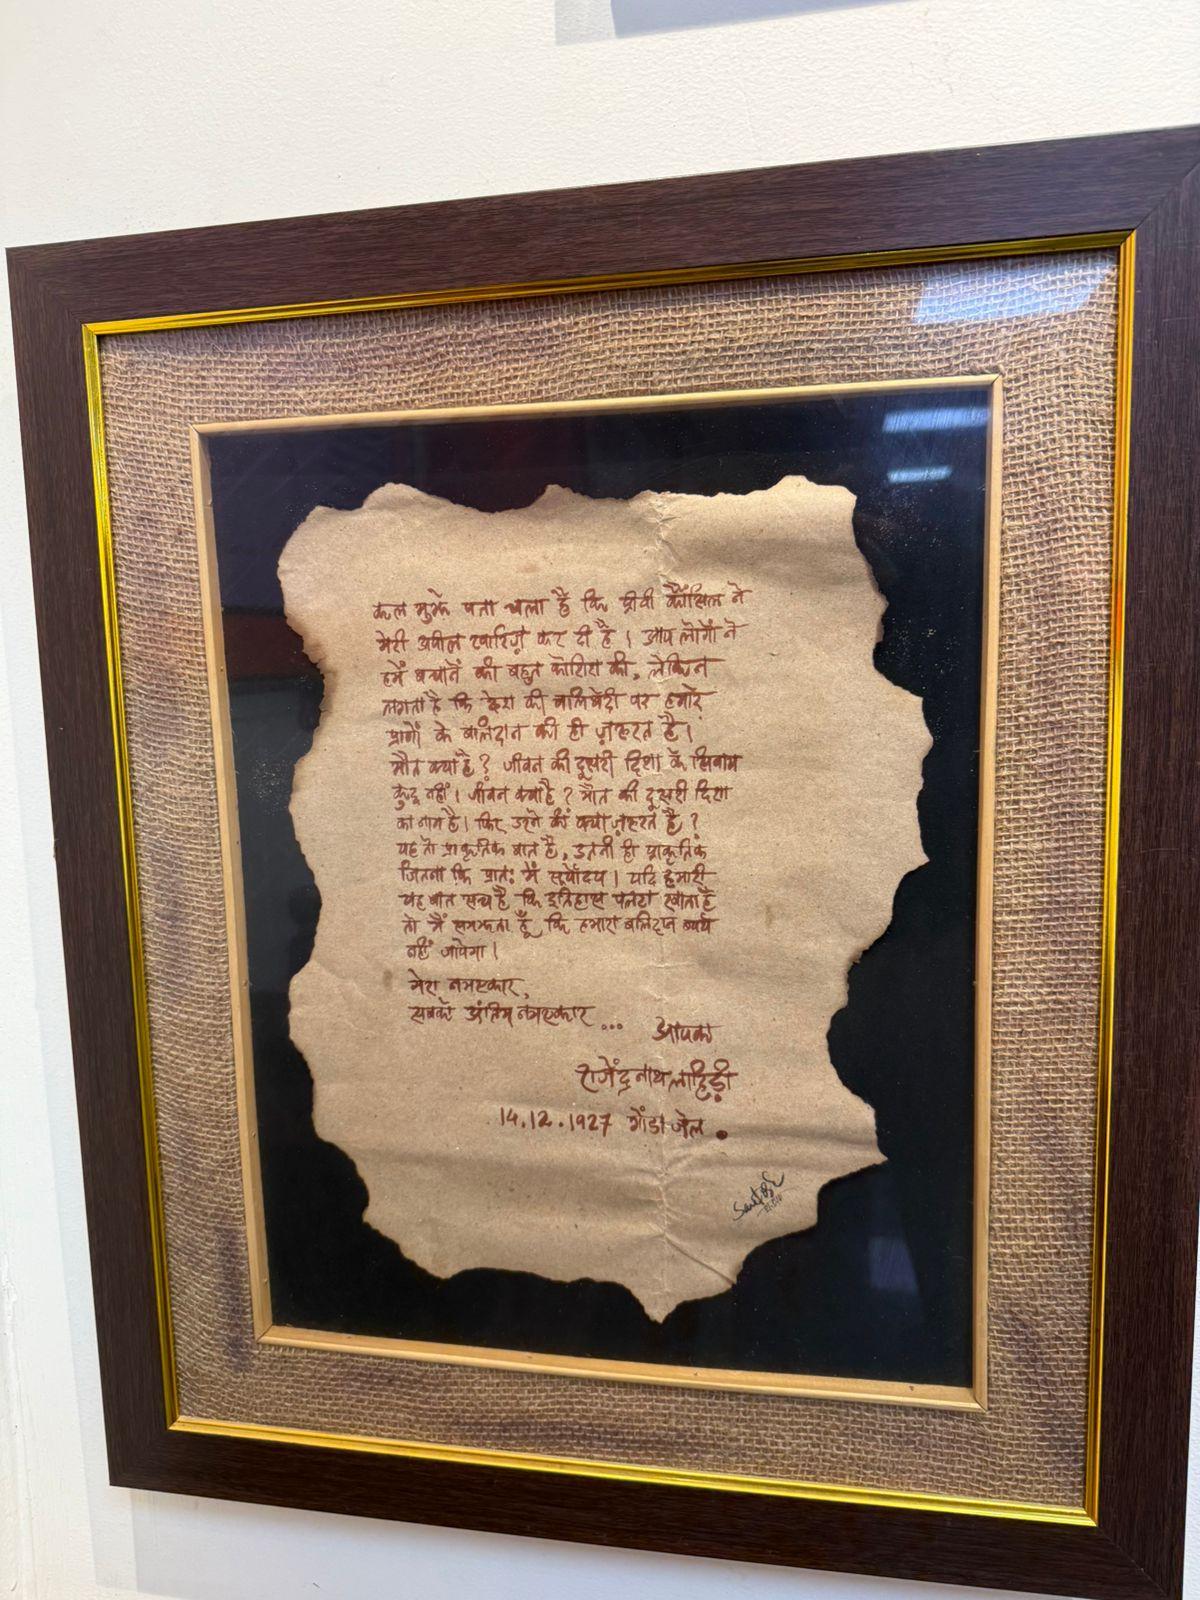 कल मुझे पता चला है कि प्रीवी कौंसिल ने
मेरी अपील खारिज़ कर दी है। आप लोगों ने
हमें बचाने की बहुत कोशिश की, लेकिन
लगता है कि देश की बलिवेदी पर हमारे
प्राणों के बलिदान की ही ज़रूरत है।
मौत क्या है? जीवन की दूसरी दिशा के सिवाय
कुछ नहीं। जीवन क्या है? मौत की दूसरी दिशा
का नाम है। फिर डरने की क्या ज़रूरत है?
यह तो प्राकृतिक बात है, उतनी ही प्राकृतिक
जितना कि प्रातः में सूर्योदय। यदि हमारी
यह बात सच है कि इतिहास पलटा खाता है
तो मैं समझता हूँ कि हमारा बलिदान व्यर्थ
नहीं जायेगा।
मेरा नमस्कार,
सबको अंतिम नमस्कार...
आपका
राजेंद्रनाथ लाहिड़ी
14.12.1927 गोंडा जेल.